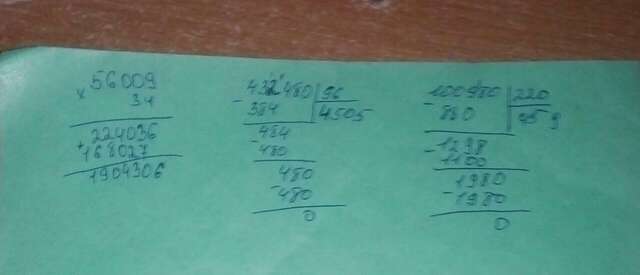 56009
x 34
224036
+ 168027
1904306
- 432480 | 96
384 | 4505
- 484
480
480
- 480
0
- 100980 | 220
880 | 459
- 1298
1100
1980
- 1980
0